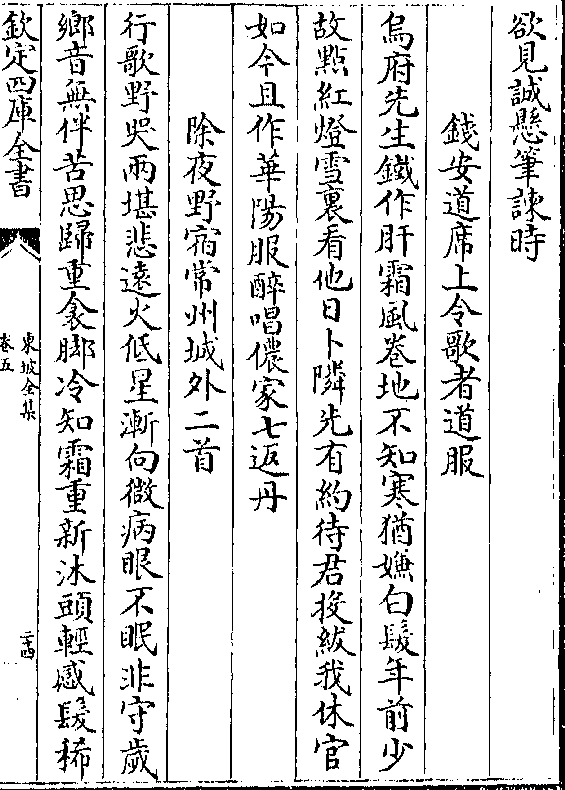 欲見誠懸筆諫時
錢安道席上令歌者道服
烏府先生鐵作肝霜風卷地不知寒猶嫌白髮年前少
故點紅燈雪裏看他日卜隣先有約待君投紱我休官
如今且作華陽服醉唱儂家七返丹
除夜野宿常州城外二首
行歌野哭兩堪悲逺火低星漸向微病眼不眠非守歲
鄉音無伴苦思歸重衾脚冷知霜重新沐頭輕感髮稀
欽定四庫全書
東坡全集
卷五
二十四